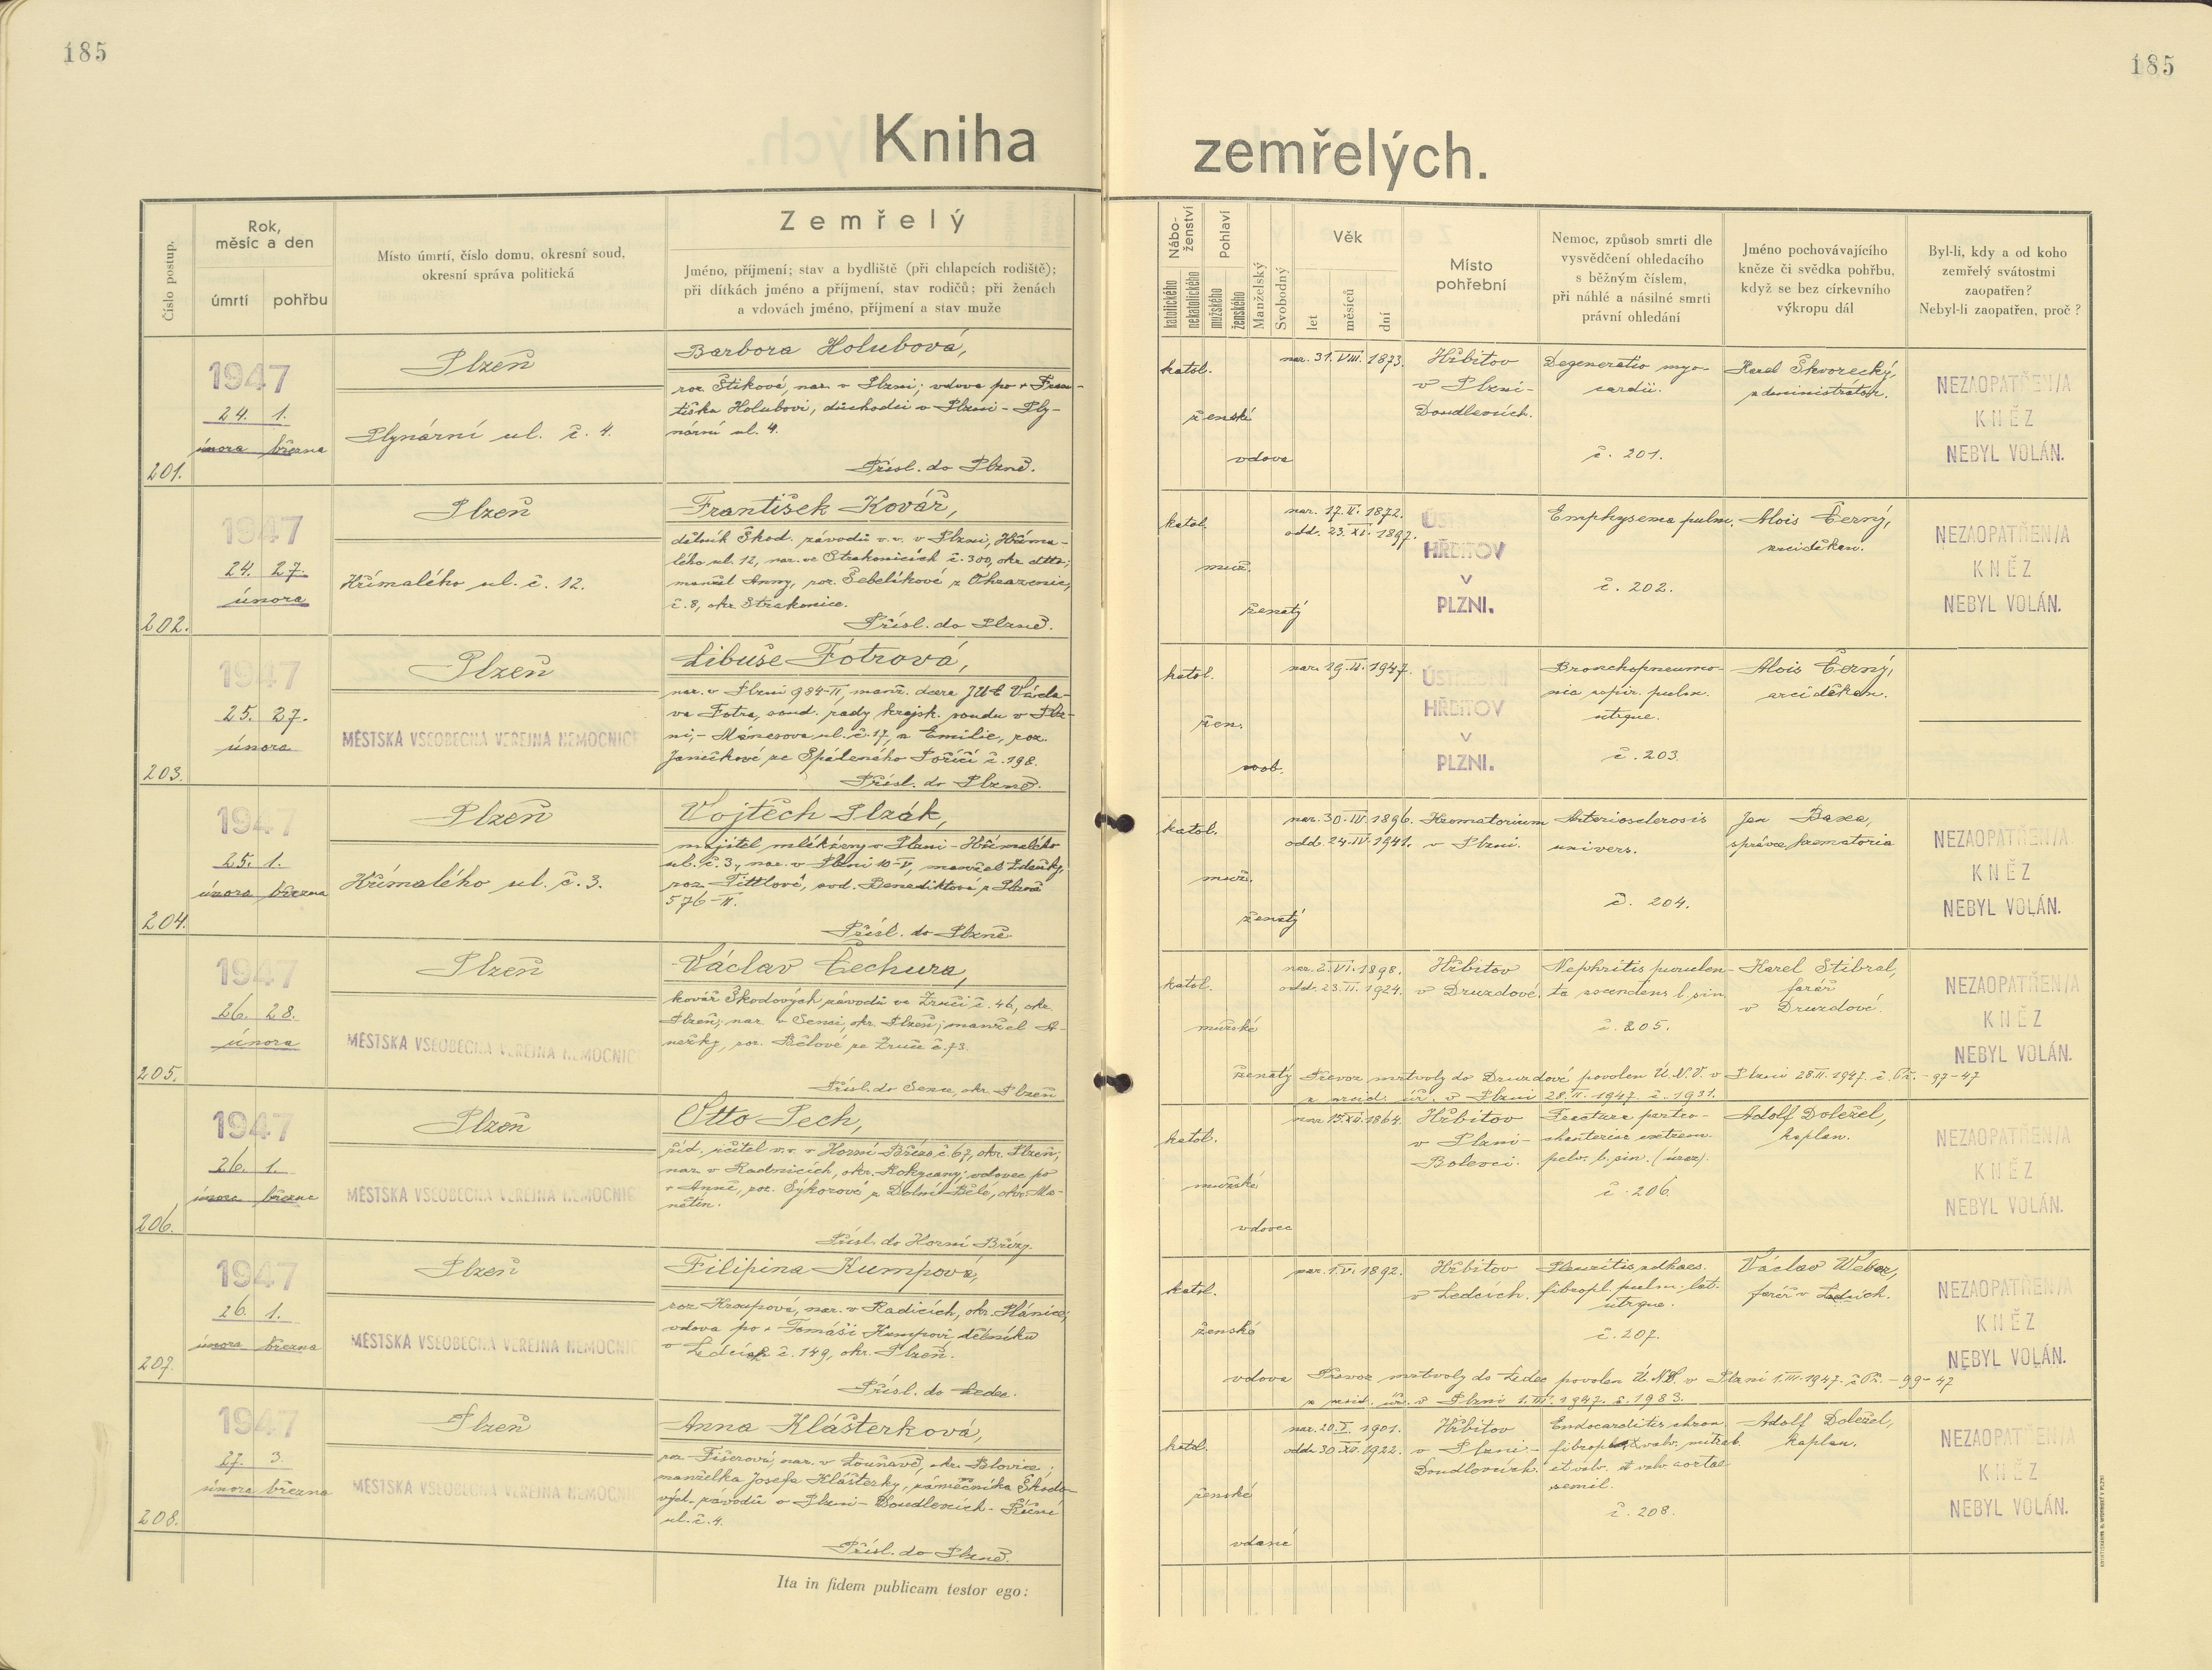 185
185
Kniha zemřelých.
Číslo postup.
Rok, měsíc a den
úmrtí
pohřbu
Místo úmrtí, číslo domu, okresní soud,
okresní správa politická
Zemřelý
Jméno, příjmení; stav a bydliště (při chlapcích rodiště);
při dítkách jméno a příjmení, stav rodičů; při ženách
a vdovách jméno, příjmení a stav muže
Náboženství
katolického
nekatolického
Pohlaví
mužského
ženského
Manželský
Svobodný
Věk
let
měsíců
dní
Místo
pohřební
Nemoc, způsob smrti dle
vysvědčení ohledacího
s běžným číslem,
při náhlé a násilné smrti
právní ohledání
Jméno pochovávajícího
kněze či svědka pohřbu,
když se bez církevního
výkropu dál
Byl-li, kdy a od koho
zemřelý svátostmi
zaopatřen?
Nebyl-li zaopatřen, proč?
201.
1947
24. 1.
února března
Plzeň
Plynární ul. č. 4.
Barbora Holubová,
roz. Štiková, nar. v Plzni; vdova po + Fran-
tišku Holubovi, důchodci v Plzni - Ply-
nární ul. 4.
Přísl. do Plzně.
katol.
ženské
vdova
nar. 31. VIII. 1873.
Hřbitov
v Plzni-
Doudlevcích.
Degeneratio myo-
cardii.
č. 201.
Karel Škvorecký,
administrátor.
NEZAOPATŘEN/A
KNĚZ
NEBYL VOLÁN.
202.
1947
24. 27.
února
Plzeň
Hřímalého ul. č. 12.
František Kovář,
dělník Škod. závodů v.v. v Plzni, Hříma-
lého ul. 12, nar. ve Strakonicích č. 300, okr. dtto;
manžel Anny, roz. Šebelíkové z
č. 8, okr. Strakonice.
Přísl. do Plzně.
katol.
muž.
ženatý
nar. 17. II. 1872.
odd. 23. XI. 1897.
ÚSTŘEDNÍ
HŘBITOV
V
PLZNI.
Emphysema pulm.
č. 202.
Alois Černý,
arciděkan.
NEZAOPATŘEN/A
KNĚZ
NEBYL VOLÁN.
203.
1947
25. 27.
února
Plzeň
MĚSTSKÁ VŠEOBECNÁ VEŘEJNÁ NEMOCNICE
Libuše Fotrová,
nar. v Plzni 984-II, manž. dcera JUC Václa-
va Fotra, soud. rady krajsk. soudu v Plz-
ni, - Mánesova ul. č. 17, a Emilie, roz.
Janečkové ze Spáleného Poříčí č. 198.
Přísl. do Plzně.
katol.
žen.
svob.
nar. 19. II. 1947.
ÚSTŘEDNÍ
HŘBITOV
V
PLZNI.
Bronchopneumo-
nia aspir. pulm.
utrque.
č. 203.
Alois Černý,
arciděkan.
204.
1947
25. 1.
února března
Plzeň
Hřímalého ul. č. 3.
Vojtěch Plzák,
majitel mlékárny v Plzni - Hřímalého
ul. č. 3, nar. v Plzni 10-V, manžel Zdeňky,
roz. Tittlové, ovd. Benediktové z Plzně
576-II.
Přísl. do Plzně
katol.
muž.
ženatý
nar. 30. III. 1896.
odd. 24. IV. 1941.
Krematorium
v Plzni.
Arteriosclerosis
univers.
č. 204.
Jan Baxa,
správce krematoria
NEZAOPATŘEN/A
KNĚZ
NEBYL VOLÁN.
205.
1947
26. 28.
února
Plzeň
MĚSTSKÁ VŠEOBECNÁ VEŘEJNÁ NEMOCNICE
Václav Čechura,
kovář Škodových závodů ve Zruči č. 46, okr.
Plzeň; nar. v Senci, okr. Plzeň; manžel A-
nežky, roz. Bělové ze Zruče č. 73.
Přísl. do Sence, okr. Plzeň
katol.
mužské
ženatý
nar. 2. VI. 1898.
odd. 23. II. 1924.
Hřbitov
v Druzdové.
Nephritis purulen-
ta ascendens l. sin.
č. 205.
Karel Stibral,
farář
v Druzdové.
NEZAOPATŘEN/A
KNĚZ
NEBYL VOLÁN.
Převoz mrtvoly do Druzdové povolen Ú.N.V. v Plzni 28. II. 1947. č. Př. - 97-47
v Plzni 28. II. 1947. č. 1931.
206.
1947
26. 1.
února března
Plzeň
MĚSTSKÁ VŠEOBECNÁ VEŘEJNÁ NEMOCNICE
Otto Pech,
říd. učitel v.v. v Horní Bříze č. 67, okr. Plzeň;
nar. v Radnicích, okr. Rokycany; vdovec po
+ Anně, roz. Sýkorové z Dolní Bělé, okr. Ma-
nětín.
Přísl. do Horní Břízy
katol.
mužské
vdovec
nar. 15. XII. 1864.
Hřbitov
v Plzni-
Bolevci.
Fractura pertro-
chanterica extrem.
pelv. l. sin. (úraz).
č. 206.
Adolf Doležel,
kaplan.
NEZAOPATŘEN/A
KNĚZ
NEBYL VOLÁN.
207.
1947
26. 1.
února března
Plzeň
MĚSTSKÁ VŠEOBECNÁ VEŘEJNÁ NEMOCNICE
Filipina Kumpová,
roz. Kroupová, nar. v Radicích, okr. Plánice;
vdova po + Tomáši Kumpovi dělníku
v Ledcích č. 149, okr. Plzeň.
Přísl. do Ledec.
katol.
ženské
vdova
nar. 1. V. 1892.
Hřbitov
v Ledcích.
Pleuritis adhaes.
fibropl. pulm. lat.
utrque.
č. 207.
Václav Weber,
farář v Ledcích.
NEZAOPATŘEN/A
KNĚZ
NEBYL VOLÁN.
Převoz mrtvoly do Ledec povolen Ú.N.V. v Plzni 1. III. 1947. č. Př. - 99-47
v Plzni 1. III. 1947. č. 1983.
208.
1947
27. 3.
února března
Plzeň
MĚSTSKÁ VŠEOBECNÁ VEŘEJNÁ NEMOCNICE
Anna Klášterková,
roz. Fišerová, nar. v Louňavě, okr. Blovice;
manželka Josefa Klášterky, zámečníka Škodo-
vých závodů v Plzni - Doudlevcích - Říční
ul. č. 4.
Přísl. do Plzně.
katol.
ženské
vdaná
nar. 20. X. 1901.
odd. 30. XII. 1922.
Hřbitov
v Plzni -
Doudlevcích.
Endocarditis chron.
valv. mitral.
et valv. aortae
semil.
č. 208.
Adolf Doležel,
kaplan.
NEZAOPATŘEN/A
KNĚZ
NEBYL VOLÁN.
Ita in fidem publicam testor ego: